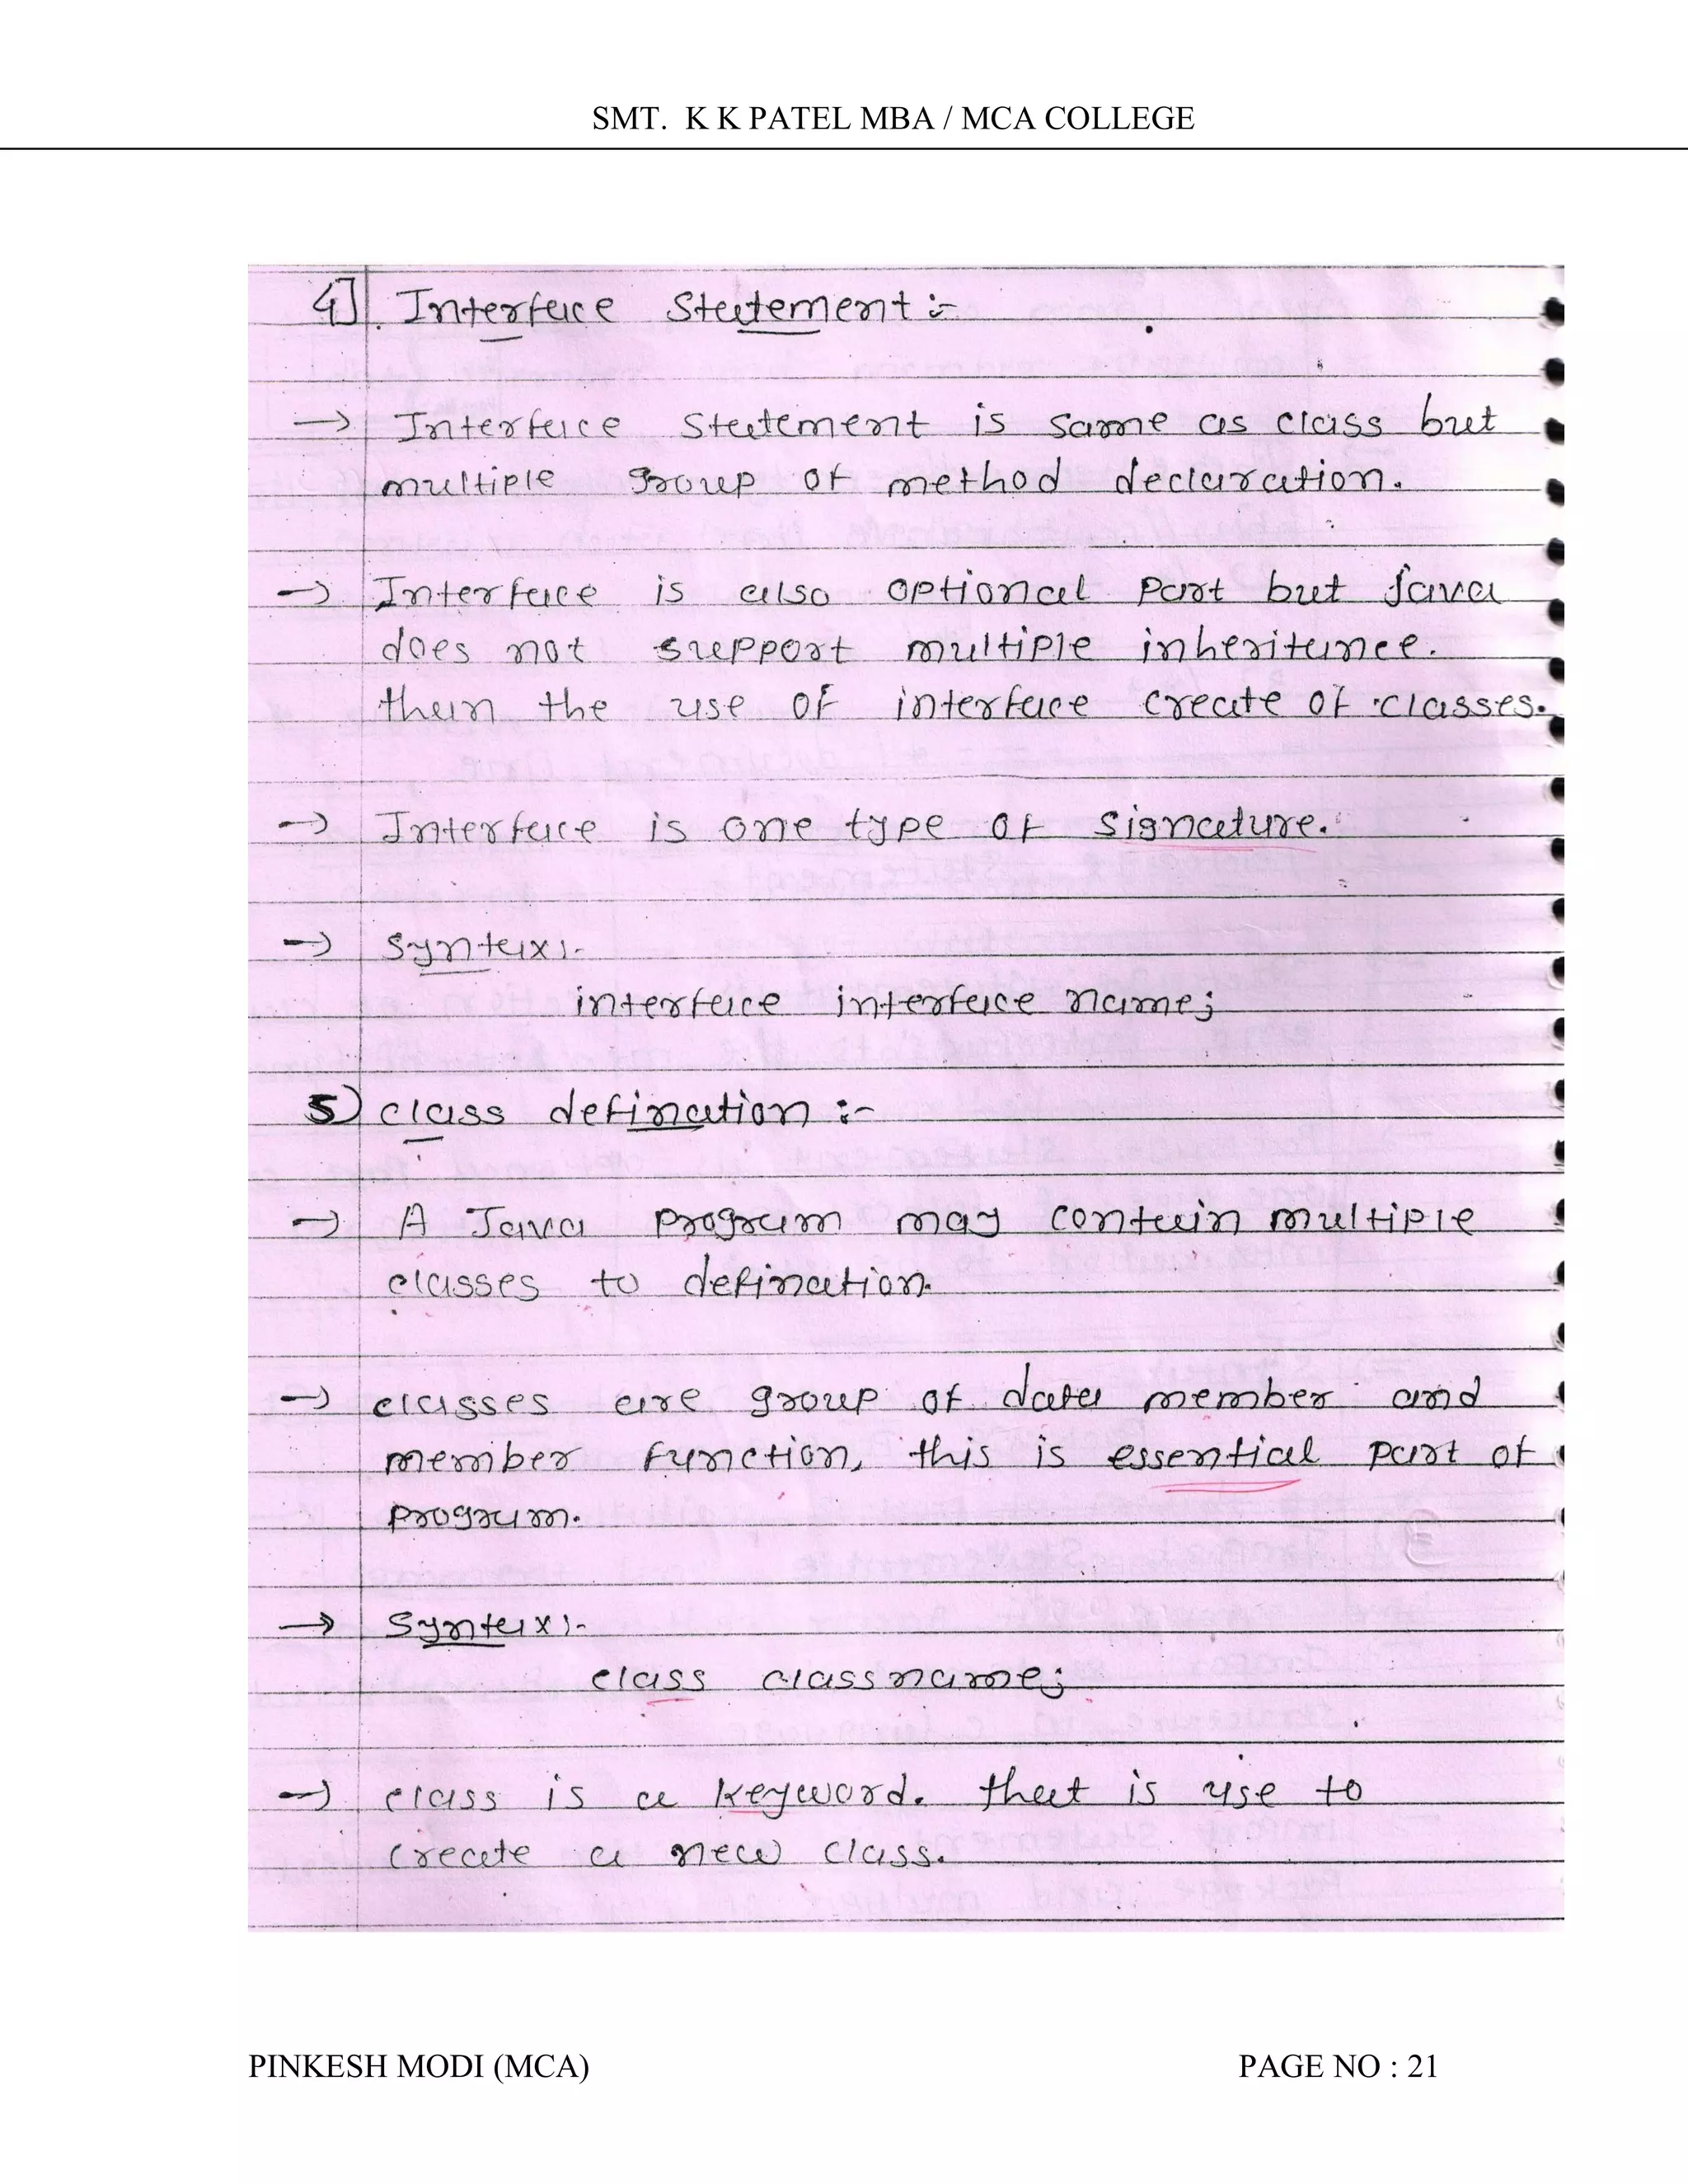 SMT. K K PATEL MBA / MCA COLLEGE
4]. Interface Statement :-
→ Interface Statement is same as class but
multiple group of method declaration.
→ Interface is also optional part but Java
does not support multiple inheritance.
than the use of interface create of classes.
→ Interface is one type of signature.
→ Syntax :-
interface interface name;
5) class defination :-
→ A Java program may contain multiple
classes to defination.
→ classes are group of data member and
member function, this is essential part of
program.
→ Syntax :-
class classname;
→ class is a keyword. that is use to
create a new class.
PINKESH MODI (MCA) PAGE NO : 21